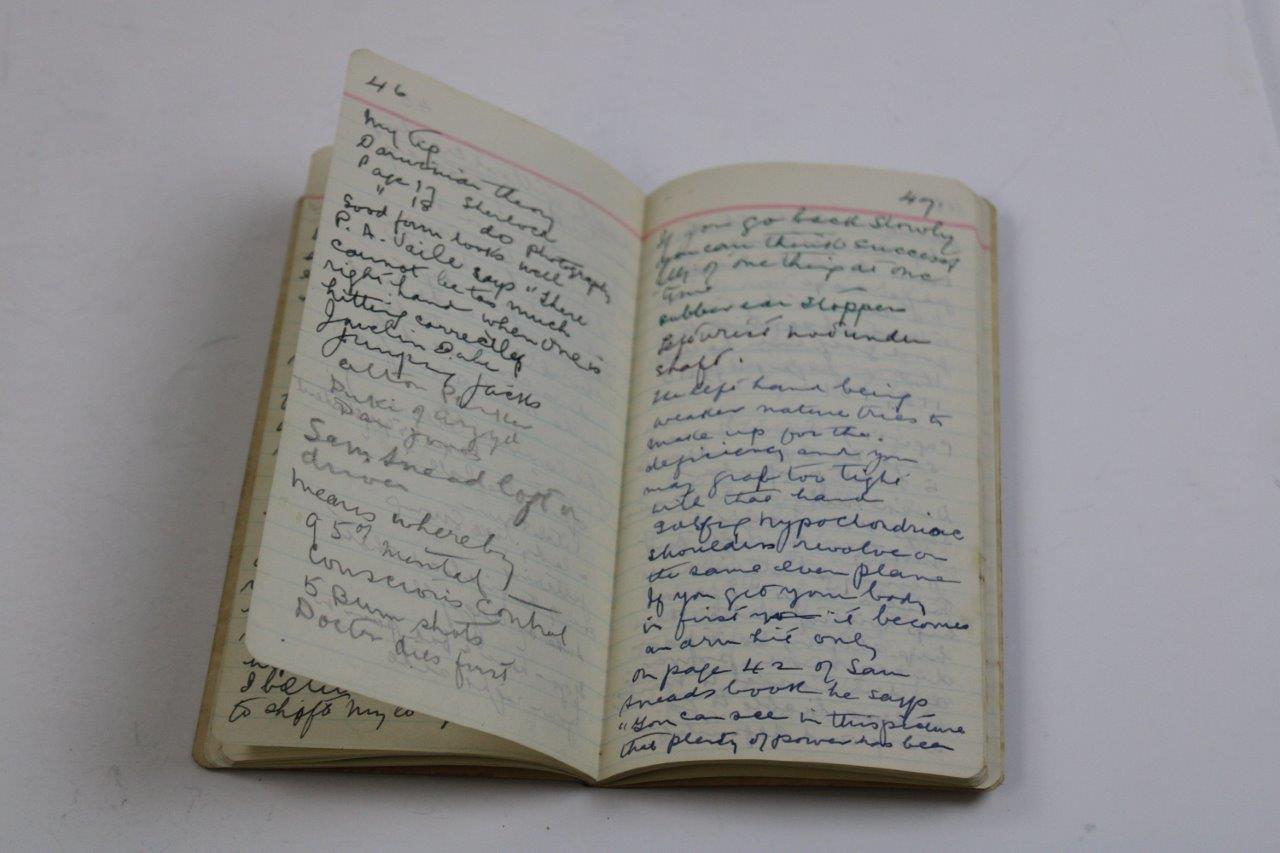 46
My tip
Darwinian theory
Page 17 Sherlock
" 18 do photography
Good form looks well
P. A. Vaile says "There
cannot be too much
right hand when one is
hitting correctly
Jumping Jacks
Duke of Argyll
Sam Snead loft on
driver
means whereby
95% mental
conscious control
5 Bum shots
Doctor dies first
to shift my
47.
If you go back slowly
you can think success
fully of one thing at one
time
rubber ear stopper
left wrist not under
shaft.
The left hand being
weaker nature tries to
make up for the.
deficiency and you
may grab too tight
with that hand
Golfing hypochondriac
shoulders revolve on
the same even plane
If you get your body
in first you it becomes
an arm hit only
on page 42 of Sam
Sneads book he says
"You can see in this picture
that plenty of power has been